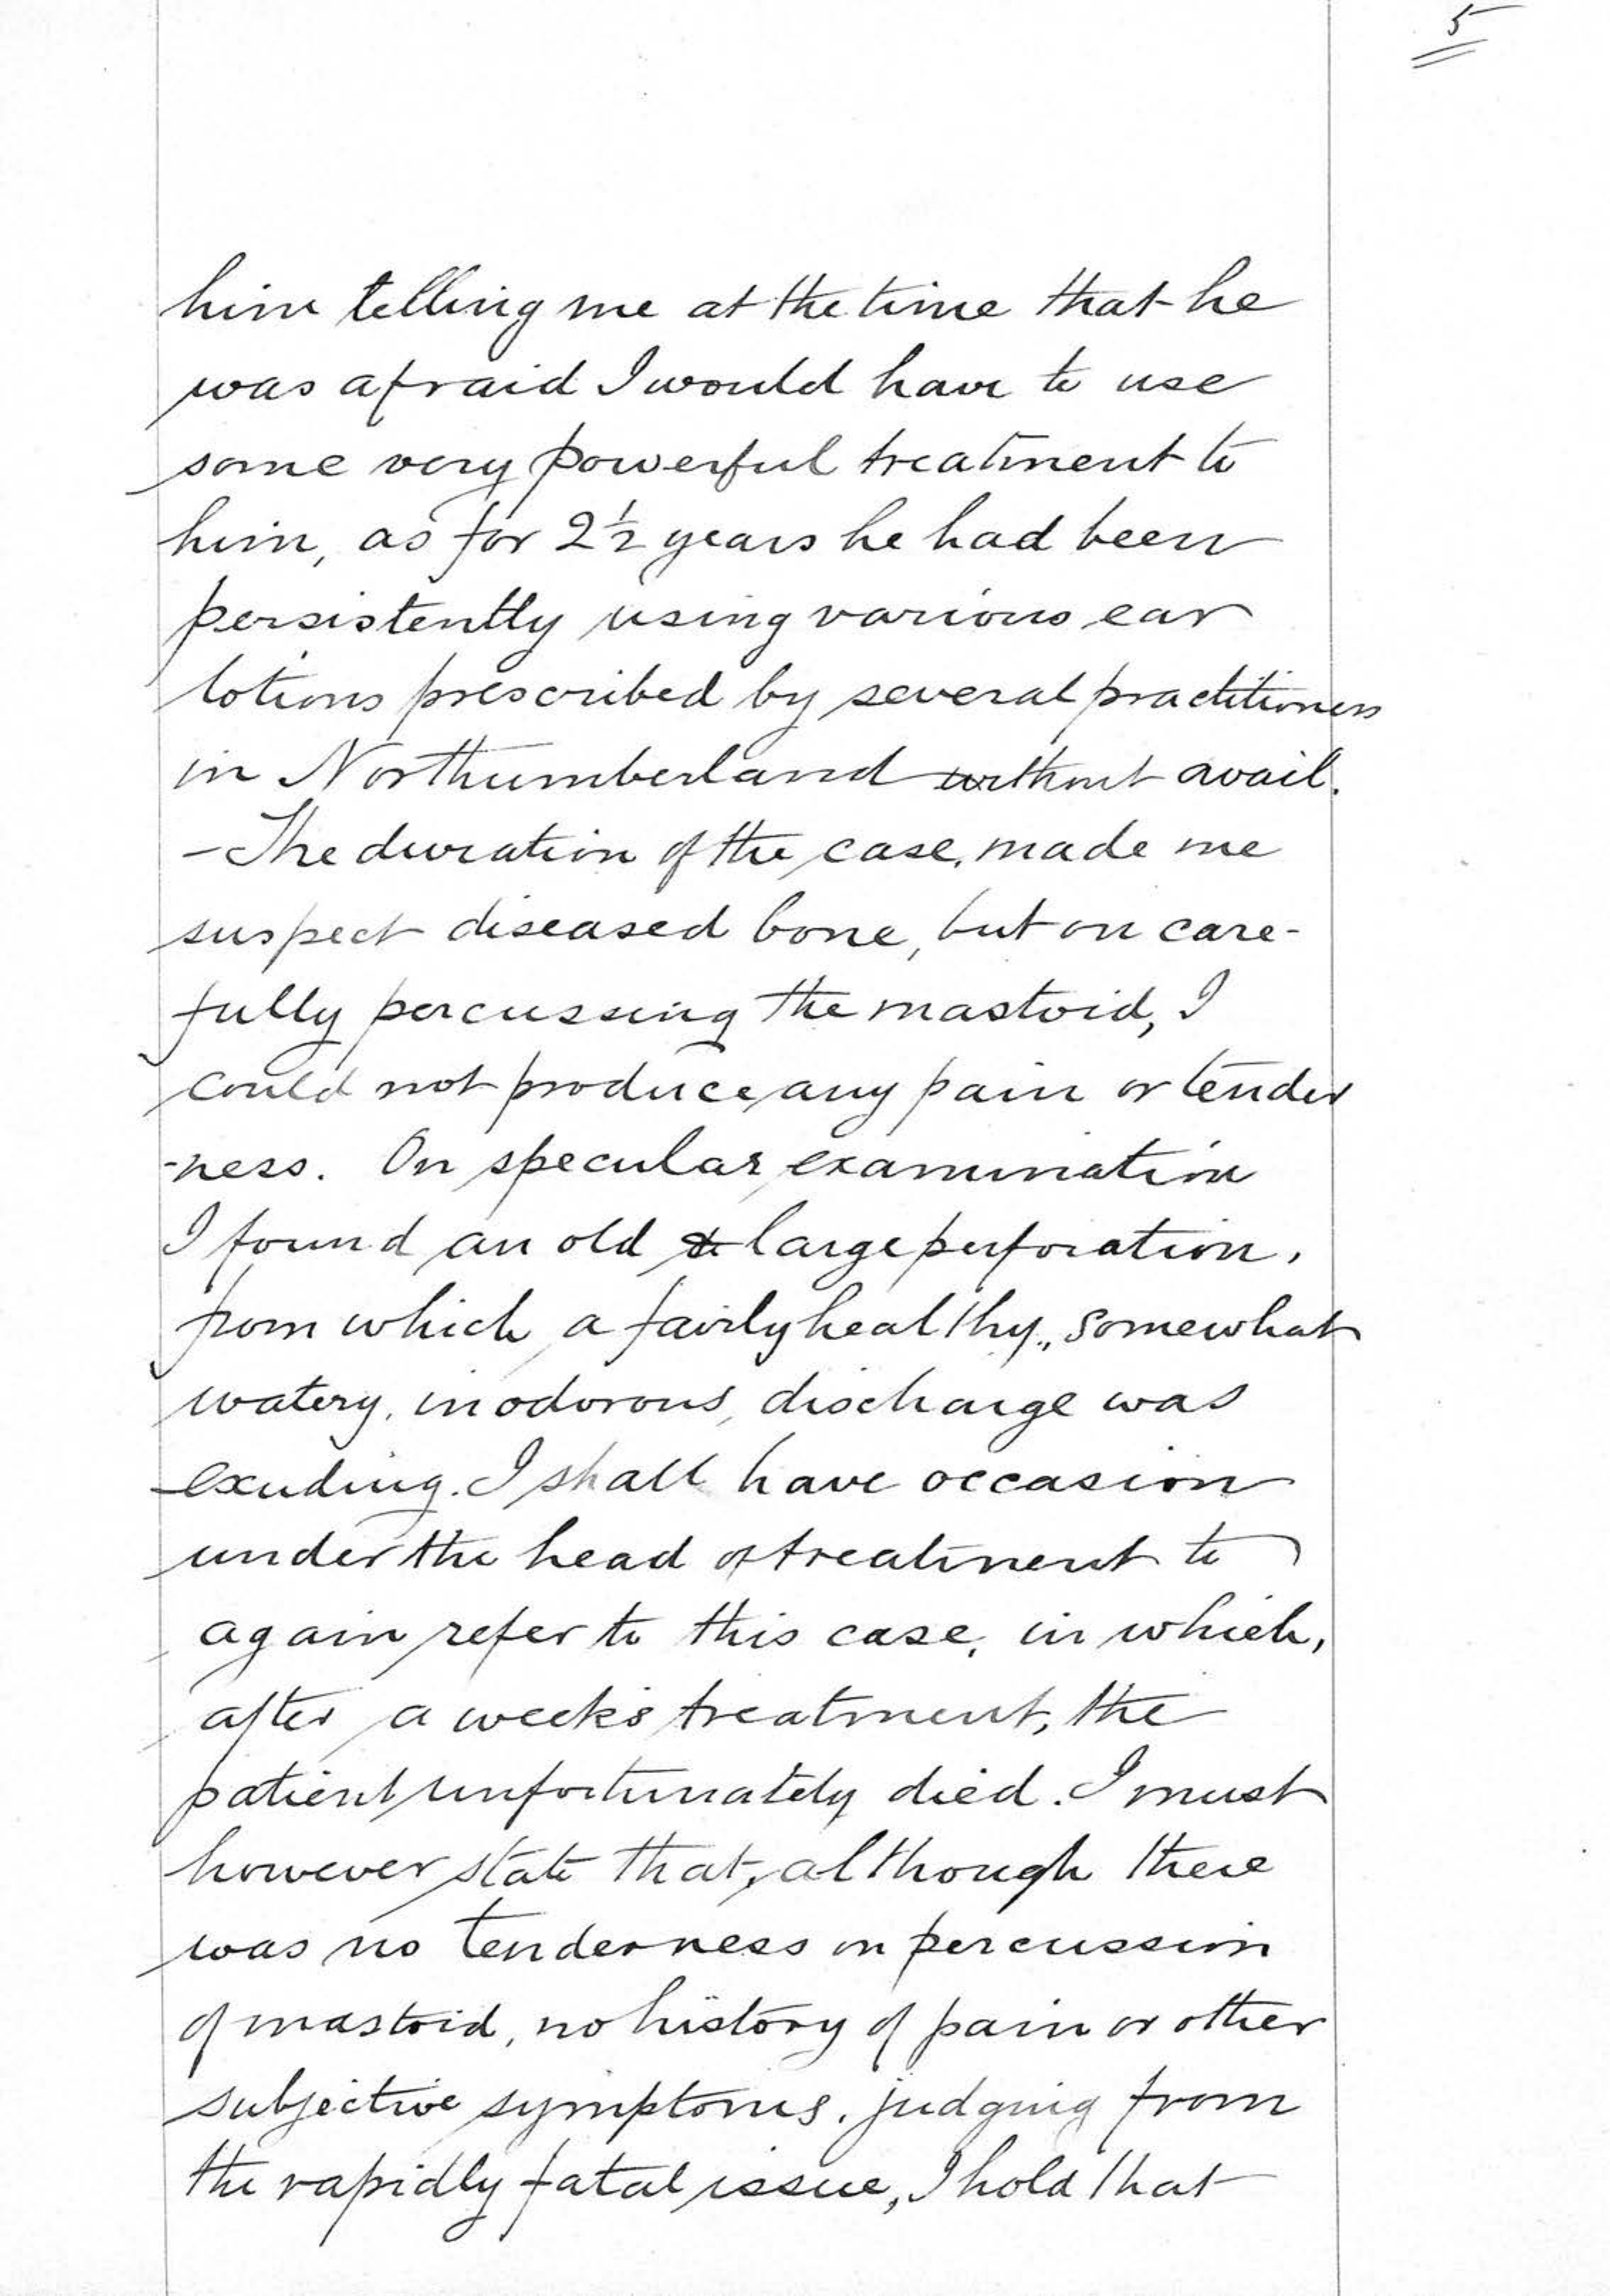 5
him telling me at the time that he
was afraid I would have to use
some very powerful treatment to
him, as for 2½ years he had been
persistently using various ear
lotions prescribed by several practitioners
in Northumberland without avail.
- The duration of the case, made me
suspect diseased bone, but on care-
fully percussing the mastoid, I
could not produce any pain or tender
-ness. On specular examination
I found an old & large perforation,
from which a fairly healthy, somewhat
watery, inodorous, discharge was
exuding. I shall have occasion
under the head of treatment to
again refer to this case, in which,
after a week's treatment, the
patient unfortunately died. I must
however state that, although there
was no tenderness on percussion
of mastoid, no history of pain or other
subjective symptoms, judging from
the rapidly fatal issue, I hold that